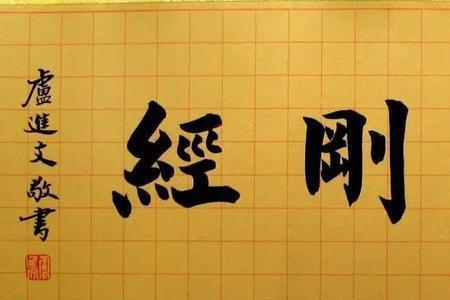 剛經
盧進文敬書